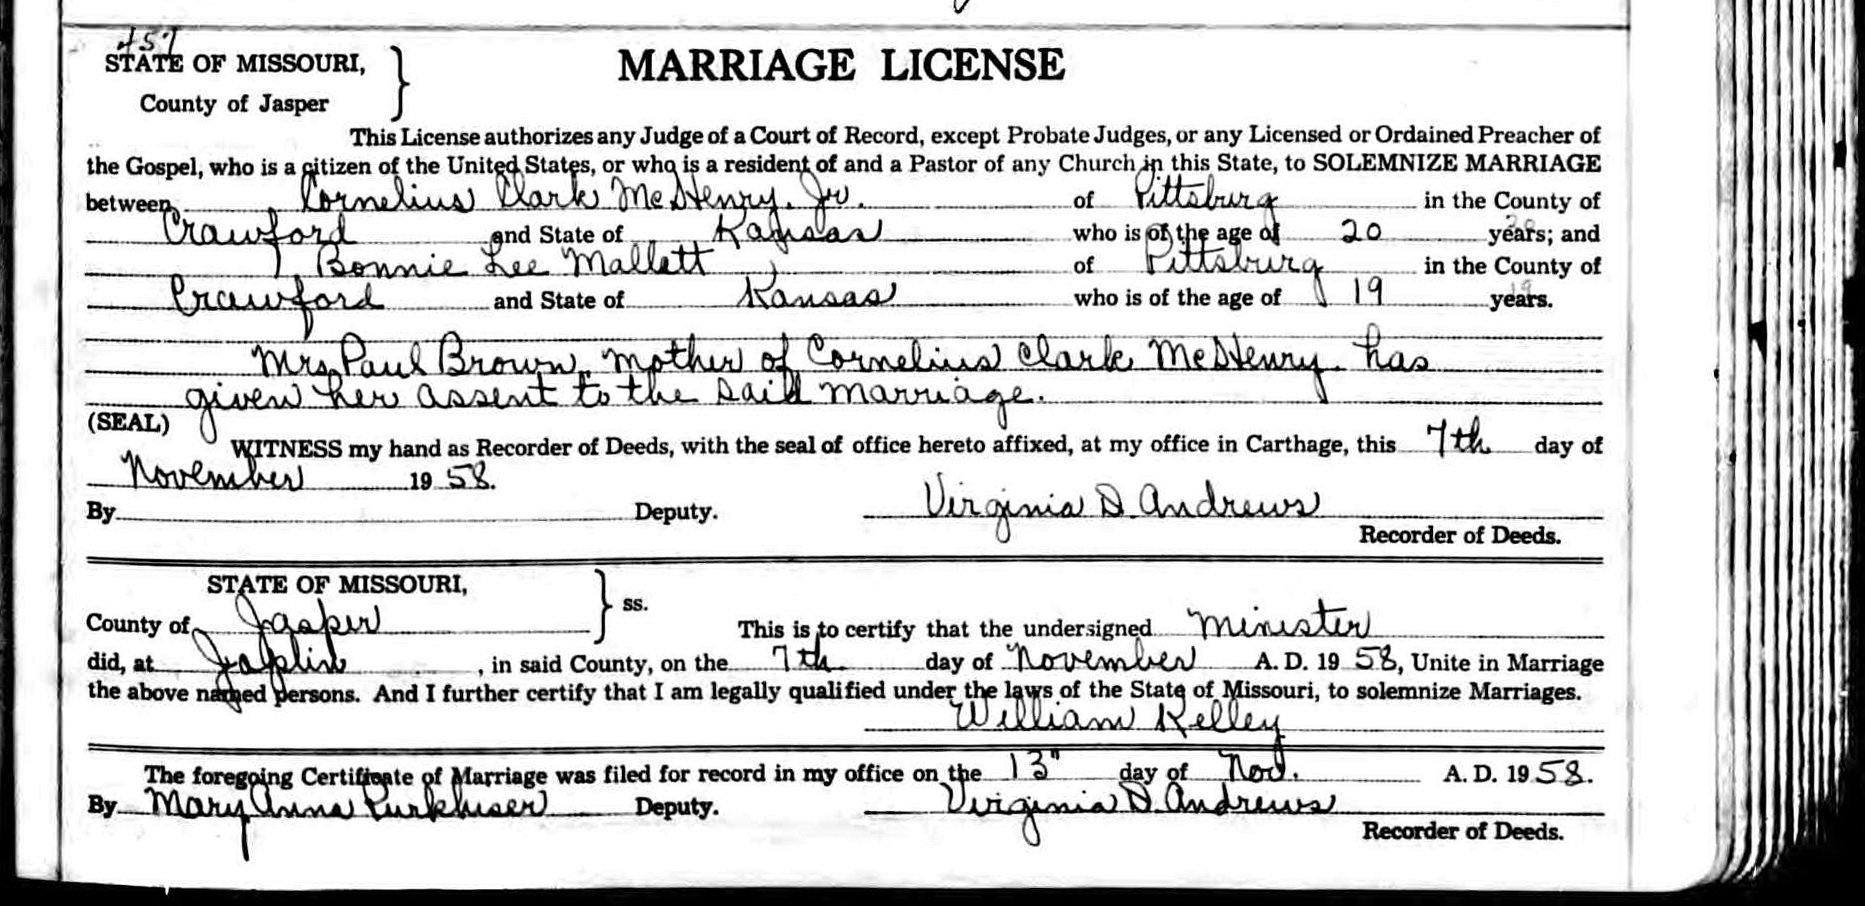 457
STATE OF MISSOURI,
County of Jasper
MARRIAGE LICENSE
This License authorizes any Judge of a Court of Record, except Probate Judges, or any Licensed or Ordained Preacher of
the Gospel, who is a citizen of the United States, or who is a resident of and a Pastor of any Church in this State, to SOLEMNIZE MARRIAGE
between Cornelius Clark McHenry. Jr. of Pittsburg in the County of
Crawford and State of Kansas who is of the age of 20 years; and
Bonnie Lee Mallett of Pittsburg in the County of
Crawford and State of Kansas who is of the age of 19 years.
Mrs Paul Brown, mother of Cornelius Clark McHenry. has
given her assent to the said marriage.
(SEAL)
WITNESS my hand as Recorder of Deeds, with the seal of office hereto affixed, at my office in Carthage, this 7th day of
November 19 58.
By Deputy. Virginia D. Andrews
Recorder of Deeds.
STATE OF MISSOURI,
County of Jasper ss. This is to certify that the undersigned Minister
did, at Joplin, in said County, on the 7th day of November A. D. 19 58, Unite in Marriage
the above named persons. And I further certify that I am legally qualified under the laws of the State of Missouri, to solemnize Marriages.
William Kelley
The foregoing Certificate of Marriage was filed for record in my office on the 13" day of Nov. A. D. 19 58.
By Mary Anna Purkhiser Deputy. Virginia D. Andrews
Recorder of Deeds.